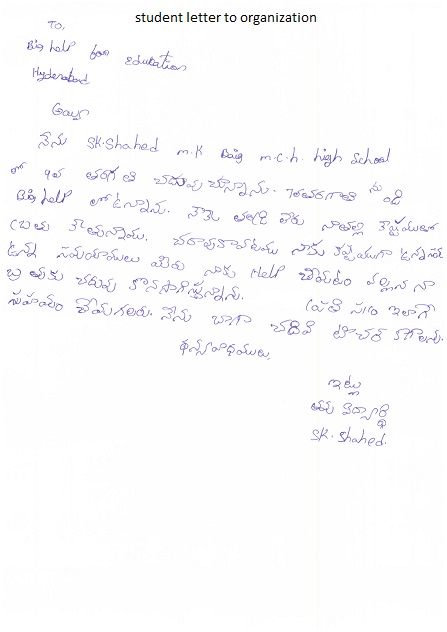 student letter to organization
To,
Big help for Education
Hyderabad
అయ్యా
నేను SK.Shahed M.K Baig m.c.h. high School
లో 9వ తరగతి చదువుచున్నాను. 7వతరగతి నుండి
Big help లో ఉన్నాను. నాకు తండ్రి లేరు నాతల్లి కష్టములో
ఉన్న సమయములు మీరు నాకు Help చేయటం వల్లన నా
బ్రతుకు చదువు కొనసాగిస్తున్నాను. ప్రతి సం॥ ఇలాగే
సహాయం చేయగలరు. నేను బాగా చదివి టీచర్ కాగలను.
ధన్యవాధములు,
ఇట్లు
తమ విద్యార్థి
SK. Shahed.